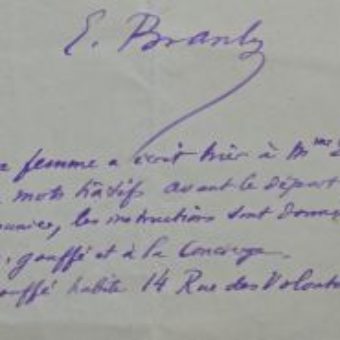 E. Branly
femme a écrit hier à Mme
mots hâtifs avant le départ
les instructions sont
gouffé et à la Concierge.
habite 14 Rue des